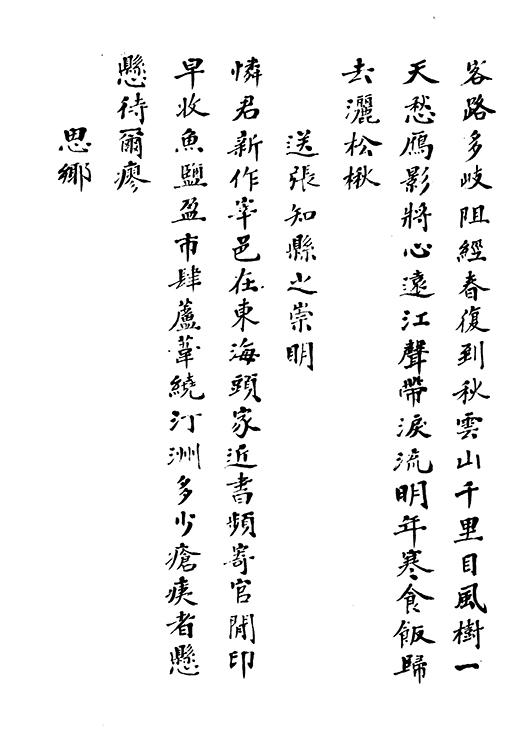 客路多歧阻經春復到秋雲山千里目風樹一
天愁鴈影將心遠江聲帶淚流明年寒食飯歸
去灑松楸
送張知縣之崇明
憐君新作宰邑在東海頭家近書頻寄官閒印
早收魚鹽盈市肆蘆葦繞汀洲多少瘡痍者懸
懸待爾瘳
思鄉